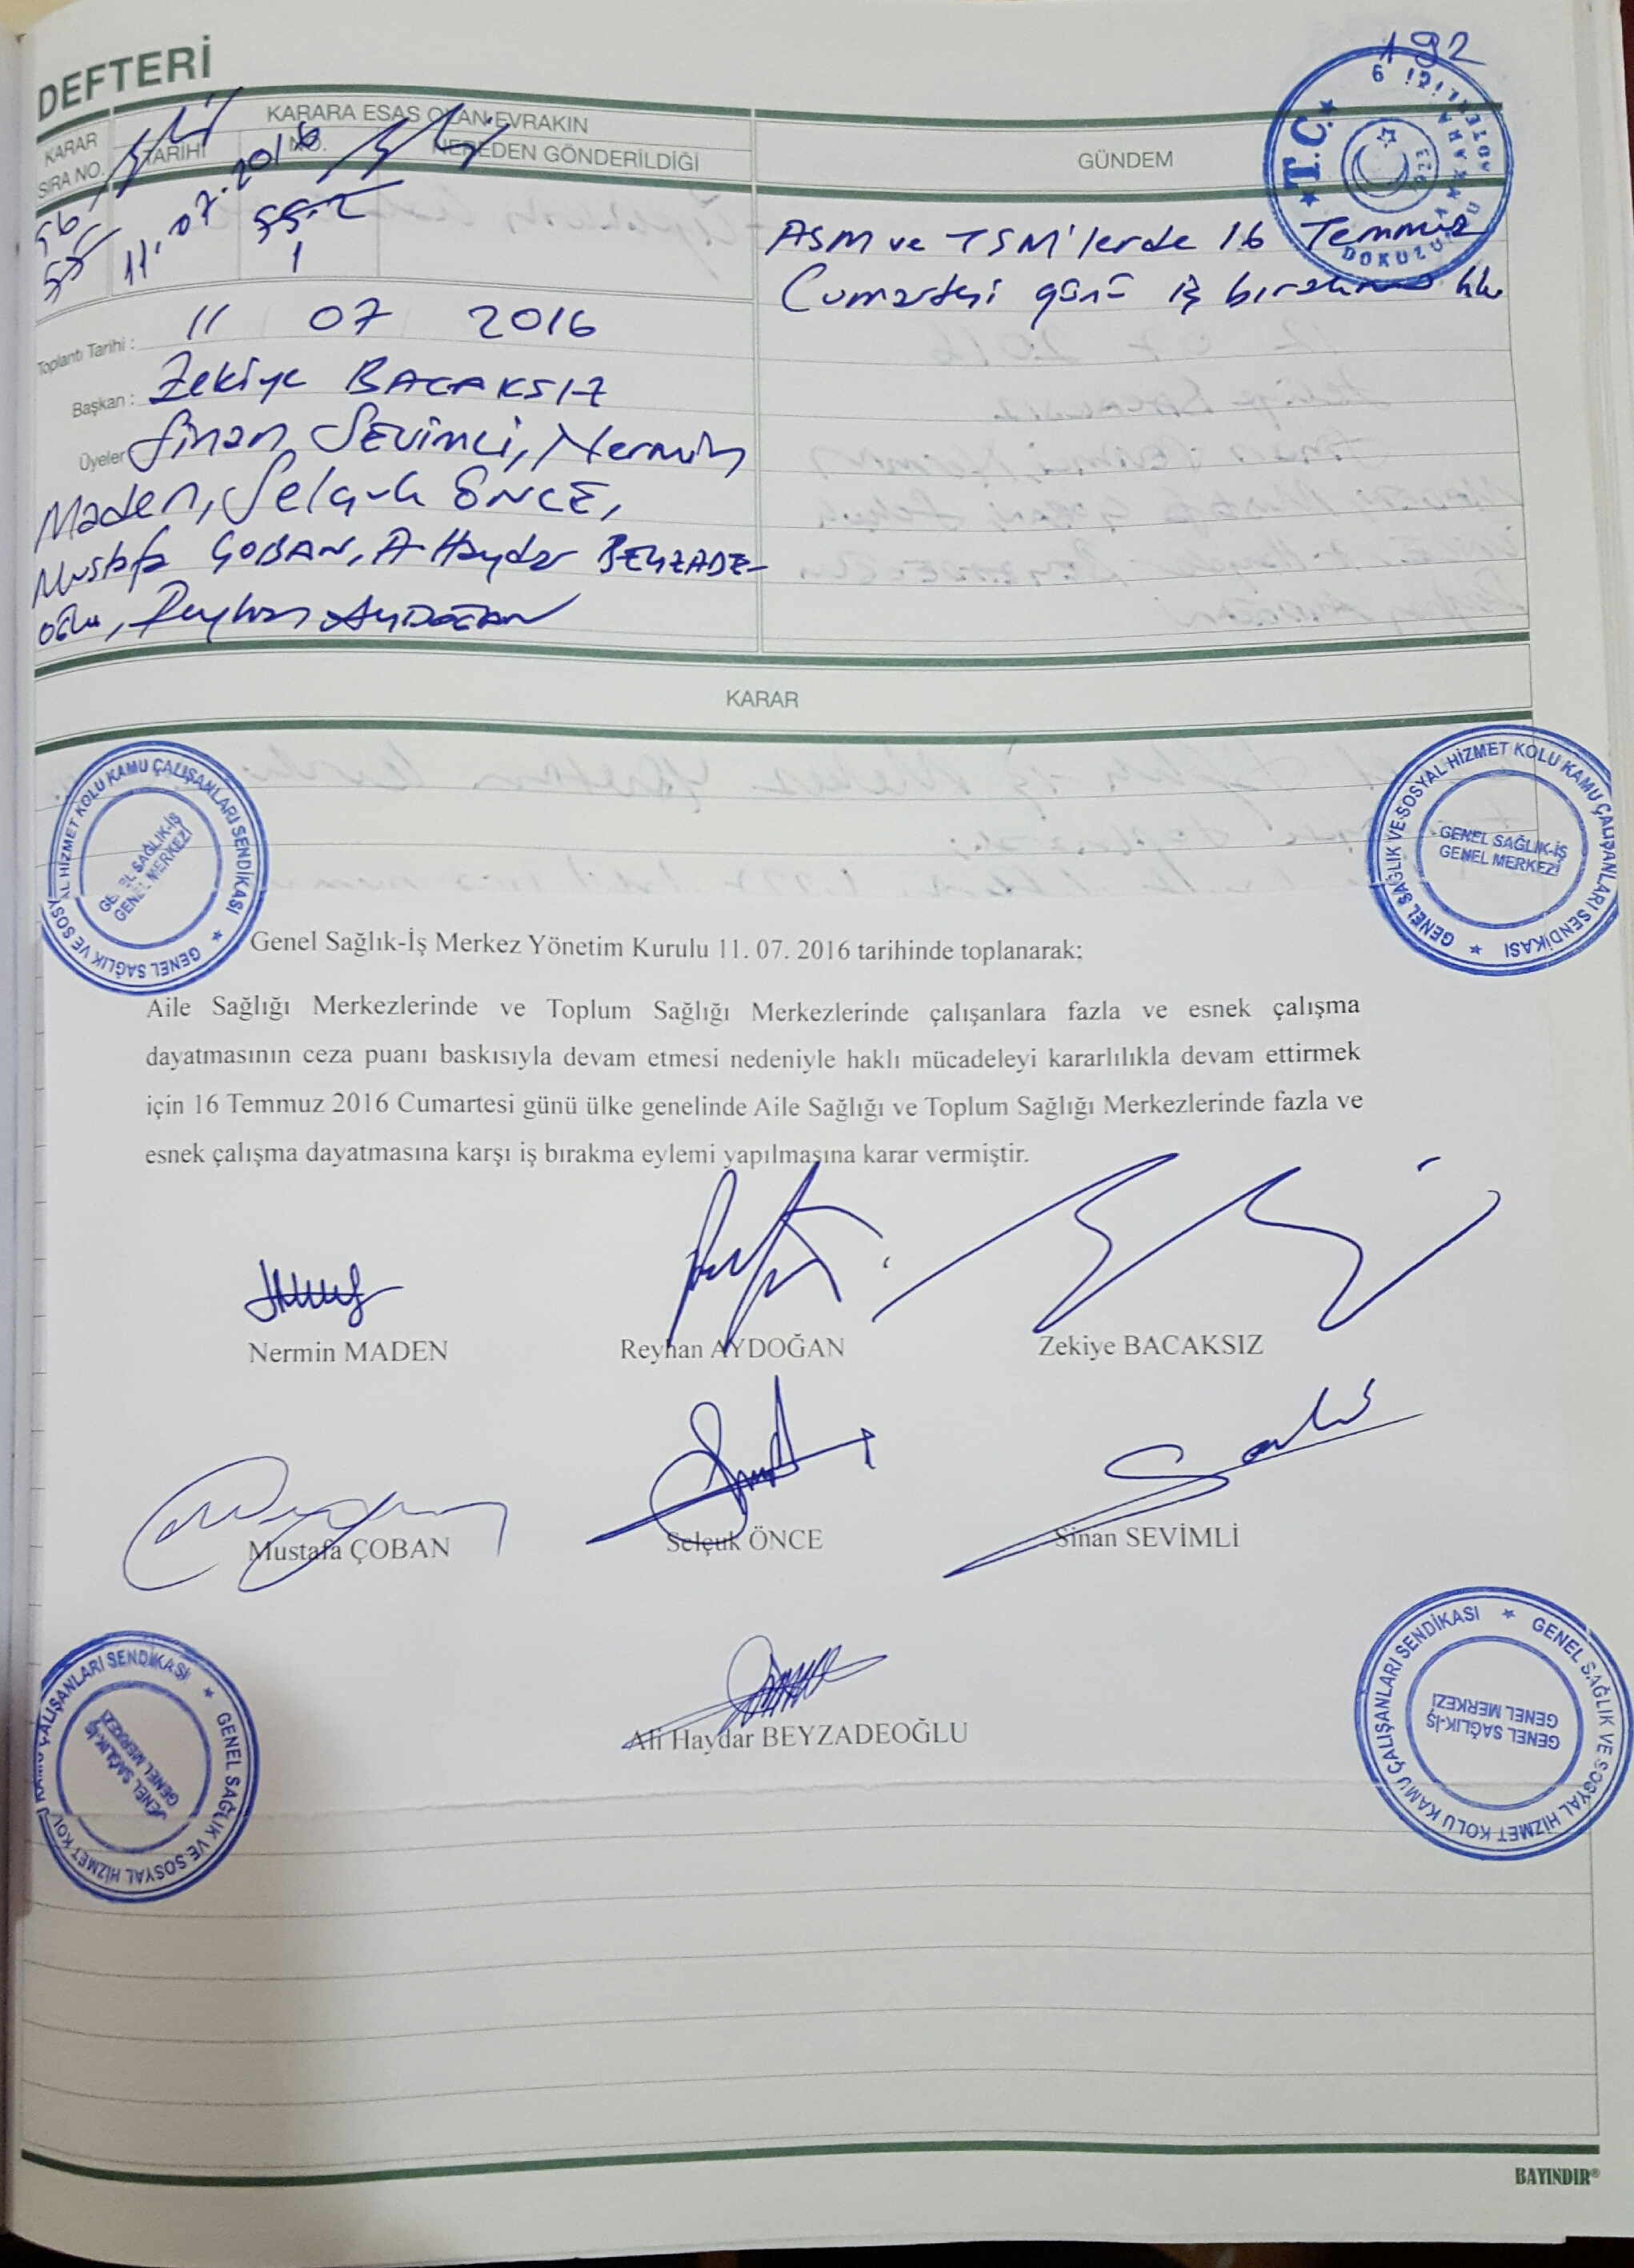 192
DEFTERİ
KARAR SIRA NO.
KARARA ESAS OLAN EVRAKIN
TARİHİ
NO.
NEREDEN GÖNDERİLDİĞİ
GÜNDEM
T.C.
11.07.2016
1
ASM ve TSM'lerde 16 Temmuz
Cumartesi günü iş bırakma hk
Toplantı Tarihi : 11 07 2016
Başkan : Zekiye BACAKSIZ
Üyeler Sinan SEVİMLİ, Nermin
Maden, Selçuk ÖNCE,
Mustafa ÇOBAN, A. Haydar BEYZADE-
OĞLU, Reyhan AYDOĞAN
KARAR
GENEL SAĞLIK VE SOSYAL HİZMET KOLU KAMU ÇALIŞANLARI SENDİKASI
GENEL SAĞLIK-İŞ
GENEL MERKEZİ
GENEL SAĞLIK VE SOSYAL HİZMET KOLU KAMU ÇALIŞANLARI SENDİKASI
GENEL SAĞLIK-İŞ
GENEL MERKEZİ
Genel Sağlık-İş Merkez Yönetim Kurulu 11. 07. 2016 tarihinde toplanarak;
Aile Sağlığı Merkezlerinde ve Toplum Sağlığı Merkezlerinde çalışanlara fazla ve esnek çalışma
dayatmasının ceza puanı baskısıyla devam etmesi nedeniyle haklı mücadeleyi kararlılıkla devam ettirmek
için 16 Temmuz 2016 Cumartesi günü ülke genelinde Aile Sağlığı ve Toplum Sağlığı Merkezlerinde fazla ve
esnek çalışma dayatmasına karşı iş bırakma eylemi yapılmasına karar vermiştir.
Nermin MADEN
Reyhan AYDOĞAN
Zekiye BACAKSIZ
Mustafa ÇOBAN
Selçuk ÖNCE
Sinan SEVİMLİ
Ali Haydar BEYZADEOĞLU
GENEL SAĞLIK VE SOSYAL HİZMET KOLU KAMU ÇALIŞANLARI SENDİKASI
GENEL SAĞLIK-İŞ
GENEL MERKEZİ
GENEL SAĞLIK VE SOSYAL HİZMET KOLU KAMU ÇALIŞANLARI SENDİKASI
GENEL SAĞLIK-İŞ
GENEL MERKEZİ
BAYINDIR®